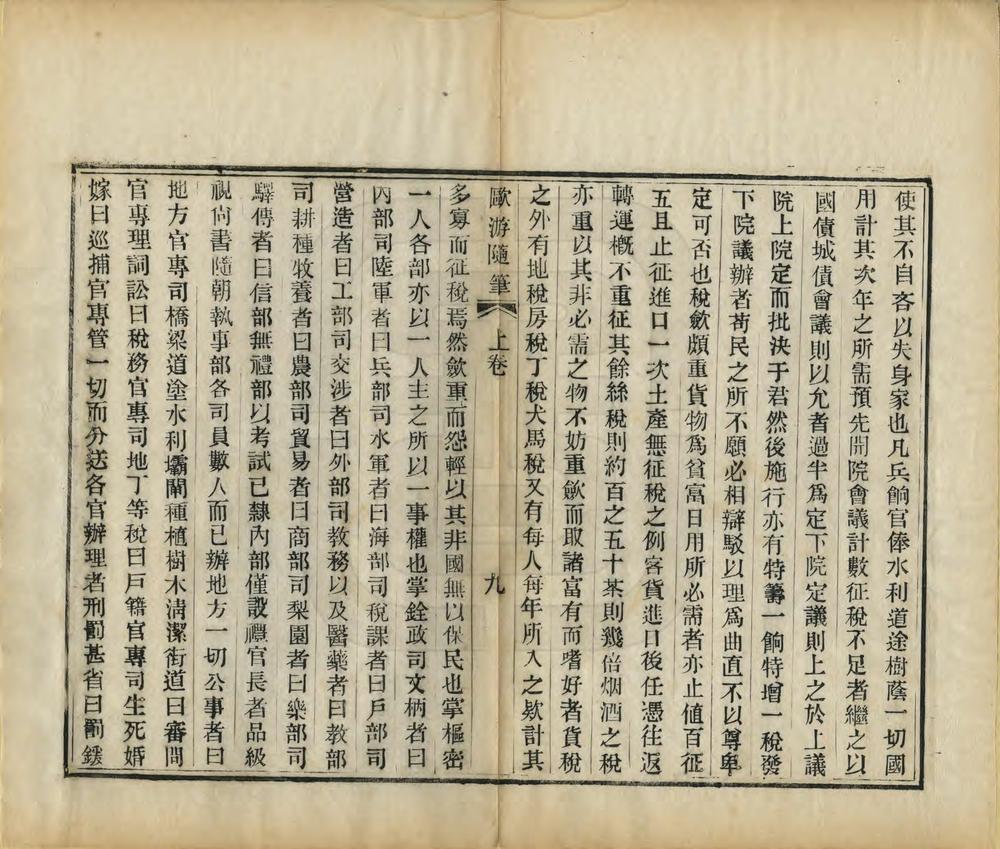 使其不自吝以失身家也凡兵餉官俸水利道途樹蔭一切國
用計其次年之所需預先開院會議計數征稅不足者繼之以
國債城債會議則以允者過半爲定下院定議則上之於上議
院上院定而批決于君然後施行亦有特籌一餉特增一稅發
下院議辦者苟民之所不願必相辯駁以理爲曲直不以尊卑
定可否也稅歛頗重貨物爲貧富日用所必需者亦止値百征
五且止征進口一次土產無征稅之例客貨進口後任憑往返
轉運概不重征其餘絲稅則約百之五十茶則幾倍烟酒之稅
亦重以其非必需之物不妨重歛而取諸富有而嗜好者貨稅
之外有地稅房稅丁稅犬馬稅又有每人每年所入之欵計其
歐游隨筆 上卷 九
多寡而征稅焉然歛重而怨輕以其非國無以保民也掌樞密
一人各部亦以一人主之所以一事權也掌銓政司文柄者曰
內部司陸軍者曰兵部司水軍者曰海部司稅課者曰戶部司
營造者曰工部司交涉者曰外部司教務以及醫藥者曰教部
司耕種牧養者曰農部司貿易者曰商部司梨園者曰樂部司
驛傳者曰信部無禮部以考試已隸內部僅設禮官長者品級
視尚書隨朝執事部各司員數人而已辦地方一切公事者曰
地方官專司橋梁道塗水利壩閘種植樹木清潔街道曰審問
官專理詞訟曰稅務官專司地丁等稅曰戶籍官專司生死婚
嫁曰巡捕官專管一切而分送各官辦理者刑罰甚省曰罰鍰